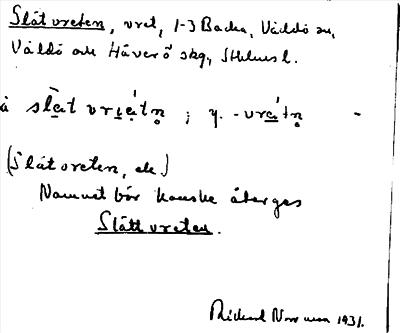 Slåtvreten, vret, 1-3 Backa, Väddö sn,
Väddö och Häverö skg, Sthlms l.
å slå̀t vrɩ̯á̀tn̥ ; y. -vrá̀tn̥ -
(Slåtvreten, ek)
Namnet bör kanske återges
Slåttvreten.
Rickard Norrman 1931.